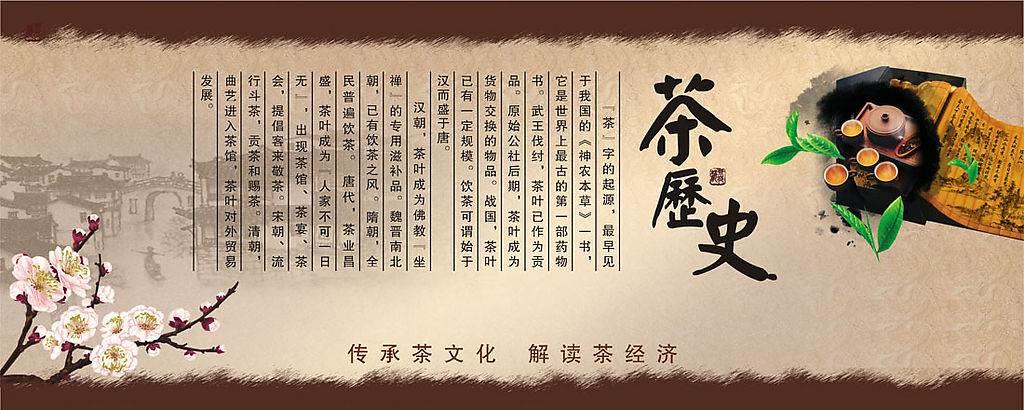 茶歷史
『茶』字的起源，最早见
于我国的《神农本草》一书，
它是世界上最古的第一部药物
书。武王伐纣，茶叶已作为贡
品。原始公社后期，茶叶成为
货物交换的物品。战国，茶叶
已有一定规模。饮茶可谓始于
汉而盛于唐。
汉朝，茶叶成为佛教『坐
禅』的专用滋补品。魏晋南北
朝，已有饮茶之风。隋朝，全
民普遍饮茶。唐代，茶业昌
盛，茶叶成为『人家不可一日
无』，出现茶馆、茶宴、茶
会，提倡客来敬茶。宋朝、流
行斗茶，贡茶和赐茶。清朝，
曲艺进入茶馆，茶叶对外贸易
发展。
传承茶文化 解读茶经济